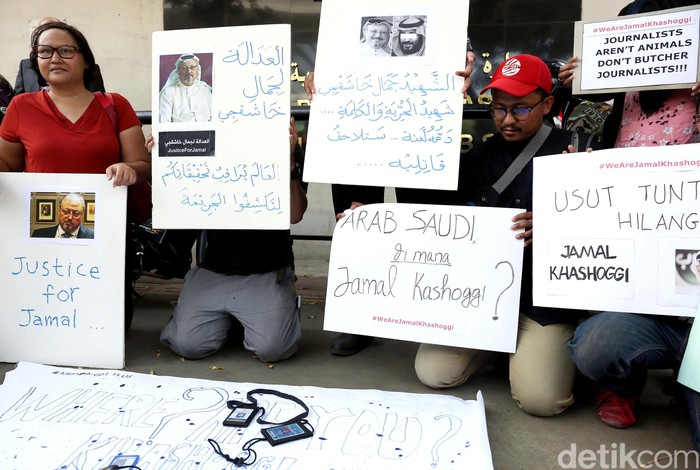 Justice
for
Jamal ...
العدالة
لجمال
خاشقجي
العدالة لجمال خاشقجي
#JusticeForJamal
العالم يراقب تحقيقاتكم
لتكشفوا الجريمة
الشهيد جمال خاشقجي
شهيد الحرية والكلمة ....
دمّه لعنة ... ستلاحق
قاتليه .....
#WeAreJamalKhashoggi
JOURNALISTS
AREN'T ANIMALS
DON'T BUTCHER
JOURNALISTS!!!
ARAB SAUDI,
di mana
Jamal Kashoggi ?
#WeAreJamalKhashoggi
#WeAreJamalKhashoggi
USUT TUNT
HILANG
JAMAL
KHASHOGGI
WHERE YOU?
detikcom